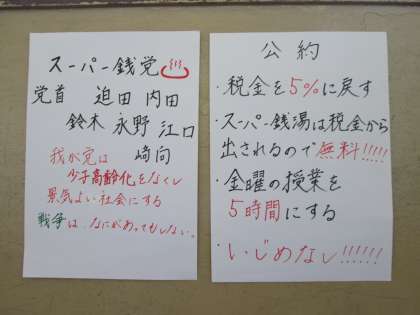 スーパー銭党♨
党首 迫田 内田
鈴木 永野 江口
崎向
我が党は
少子高齢化をなくし
景気よい社会にする
戦争は、なにがあってもしない。
公約
・税金を5%に戻す
・スーパー銭湯は税金から
出されるので無料!!!!!
・金曜の授業を
5時間にする
・いじめなし!!!!!!